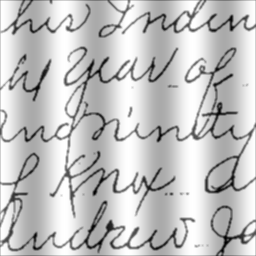 his Inden
year of
and ninety
f Knox a
Andrew Ja